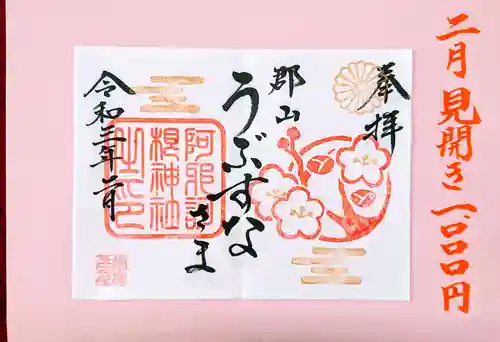 二月 見開き 一、〇〇〇円
奉拝
郡山
うぶすなさま
阿邪訶
根神社
之印
令和三年二月